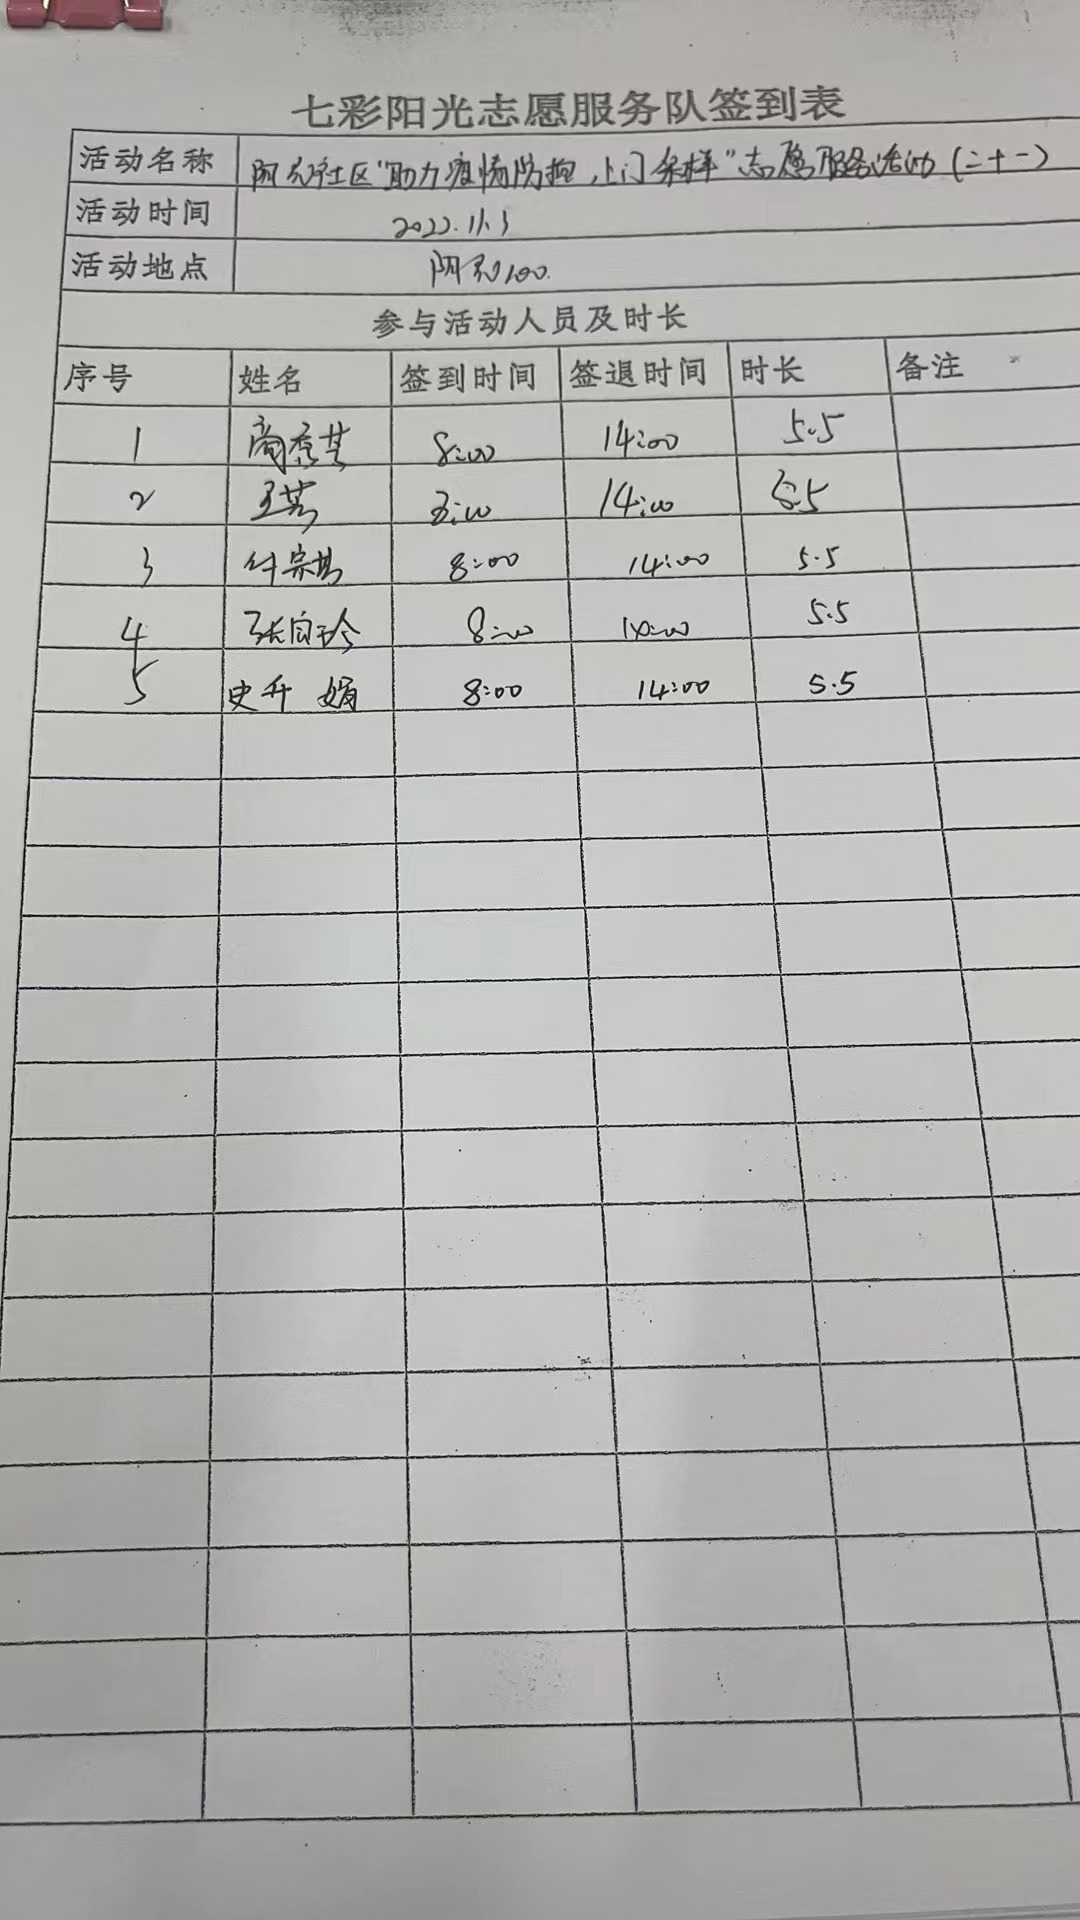 七彩阳光志愿服务队签到表
活动名称 社区"助力疫情防控,上门采样"志愿服务活动(二十一)
活动时间 2022.11.3
活动地点 100.
参与活动人员及时长
序号 姓名 签到时间 签退时间 时长 备注
1 8:00 14:00 5.5
2 8:00 14:00 5.5
3 8:00 14:00 5.5
4 张自珍 8:00 14:00 5.5
5 史升娟 8:00 14:00 5.5